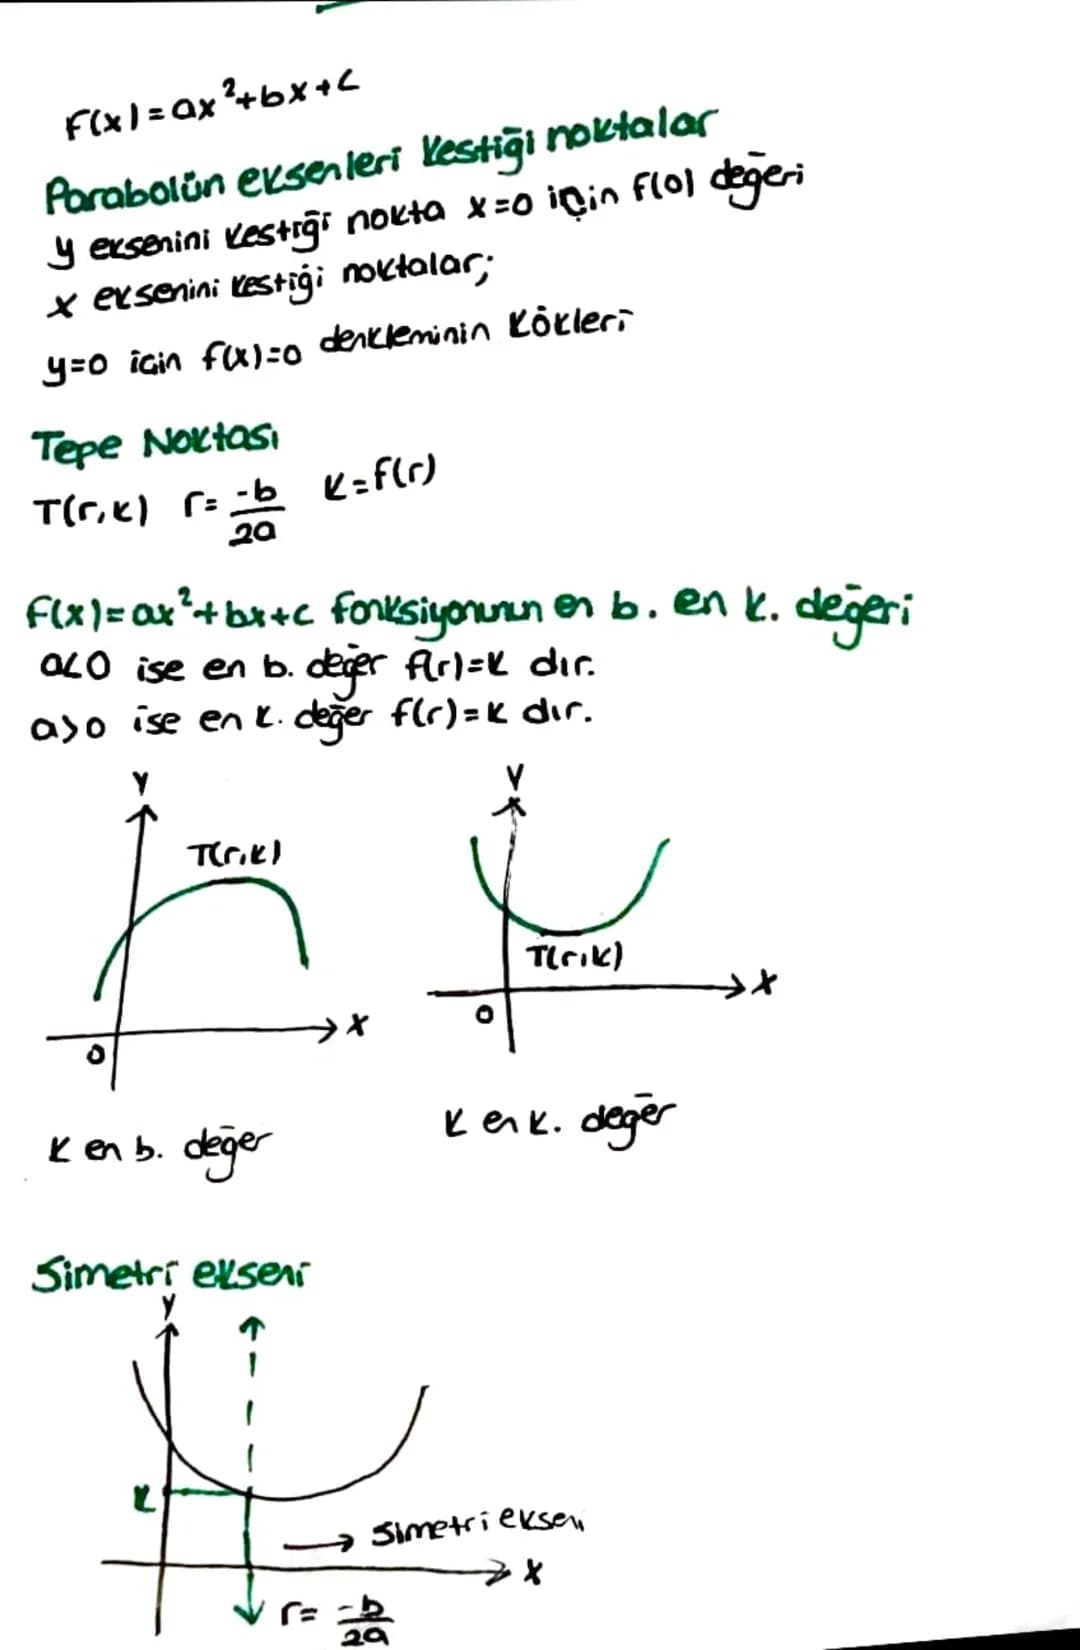 F(x)=ax²+bx+c
Parabolün eksenleri kestiği noktalar
y eksenini kestiği nokta x=0 için F(0) değeri
x eksenini kestiği noktalar;
y=0 için f(x)=0 denkleminin kökleri
Tepe Noktası
T(r,k) r= -b/2a k=f(r)
f(x)=ax²+bx+c fonksiyonunun en b. en k. değeri
a<0 ise en b. değer f(r)=k dır.
a>0 ise en k. değer f(r)=k dır.
y
y
T(r,k)
T(r,k)
x
x
0
0
k en b. değer
k en k. değer
Simetri ekseni
y
k
→ Simetri eksen
x
r= -b/2a